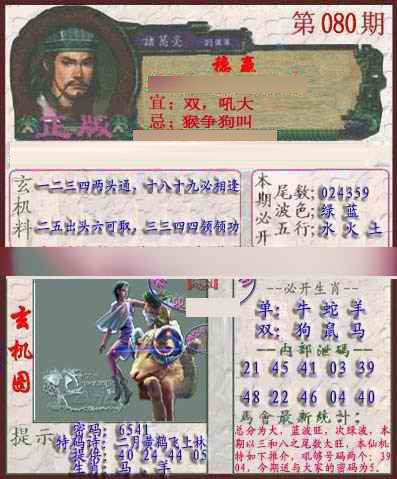 第080期
諸葛亮
穩贏
宜：双，吼大
忌：猴争狗叫
正版
玄机料
一二三四两头通，十八十九必相逢
二五出头六可取，三三四四领领功
本期必开
尾数；024359
波色；绿 蓝
五行；水 火 土
玄机图
必开生肖
单：牛 蛇 羊
双：狗 鼠 马
内部泄码
21 45 41 03 39
48 22 46 04 40
馬會最新統計：
总分为大，蓝波旺，次绿波，本
期以三和八之尾数大旺，本仙机
特如下推介，吼够号码两个：39
04，今期送与大家的密码为5。
提示
密码：6541
特码诗：二月黄鹤飞上林
提供：40 24 44 05
生肖：马、羊